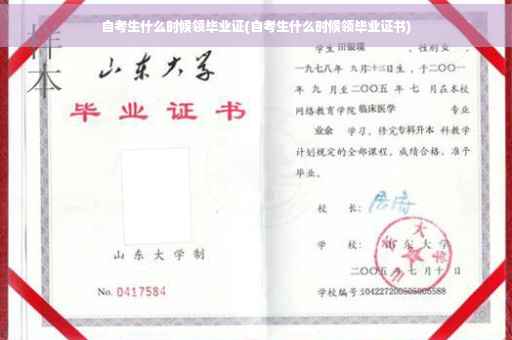 自考生什么时候领毕业证(自考生什么时候领毕业证书)
样本
山东大学
毕业证书
山东大学制
No. 0417584
学生 田银瑞 ，性别 女 ，
一九七八年 九月十三日生，于二〇〇一
年 九 月至二〇〇五 年 七 月在本校
网络教育学院 临床医学 专业
业余 学习，修完专科升本 科教学
计划规定的全部课程，成绩合格，准予
毕业。
校 长：
学 校：山东大学
二〇〇五 年 七 月 十 日
学校编号:104227200505005588